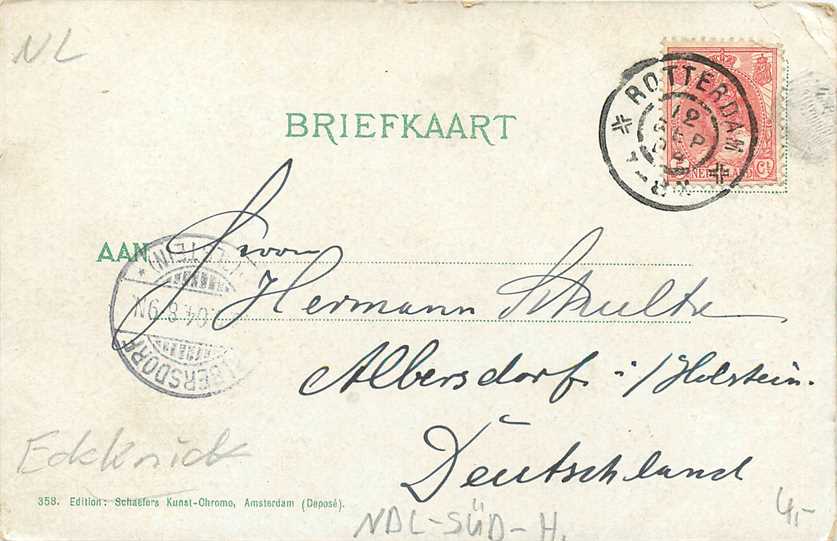 NL
BRIEFKAART
ROTTERDAM
12
SEP
NEDERLAND
Ct
AAN
Herrn
Hermann Schulte
Albersdorf i/Holstein.
Deutschland
ALBERSDORF
(HOLSTEIN)
04. 8-9N.
Eckknick
358. Edition: Schaefers Kunst-Chromo, Amsterdam (Deposé).
NDL-SÜD-H.
4,-